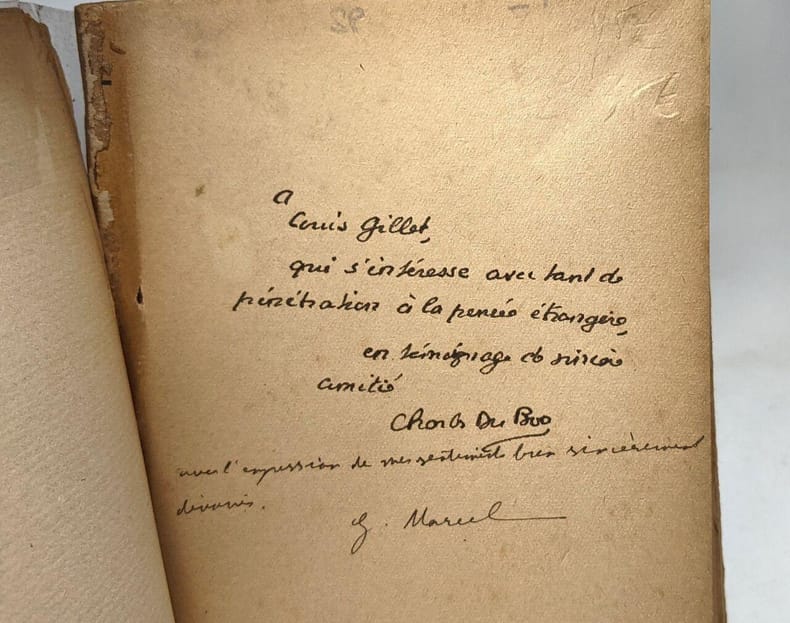 A
Louis Gillet,
qui s'intéresse avec tant de
pénétration à la pensée étrangère,
en témoignage de sincère
amitié
Charles Du Bos
avec l'expression de mes sentiments bien sincèrement
dévoués.
G. Marcel